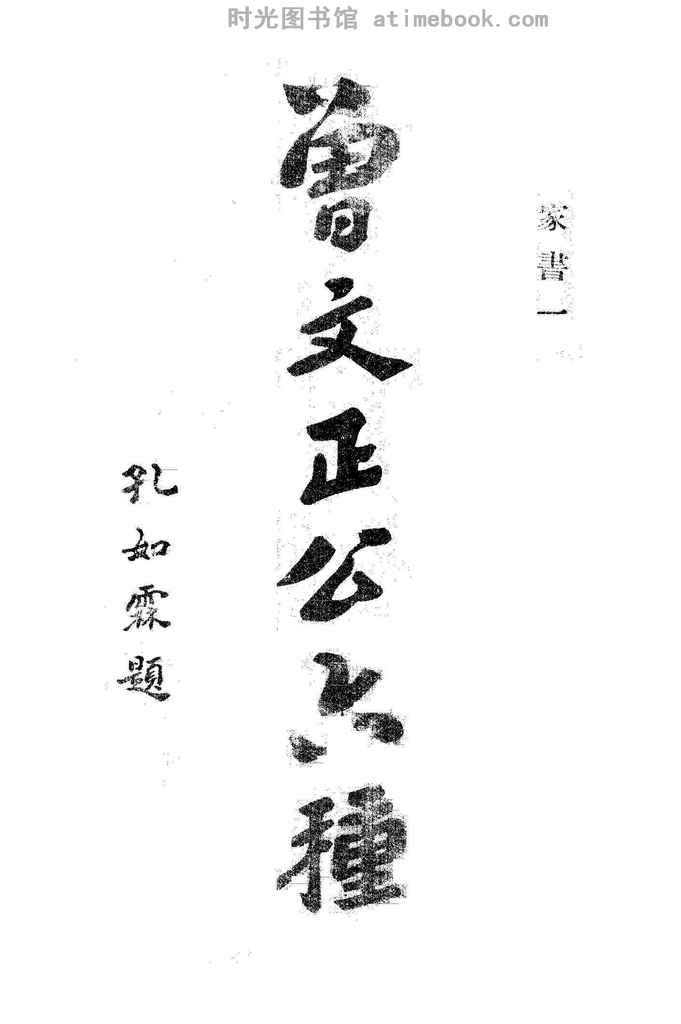 时光图书馆 atimebook.com
家書一
曾文正公六種
孔如霖題